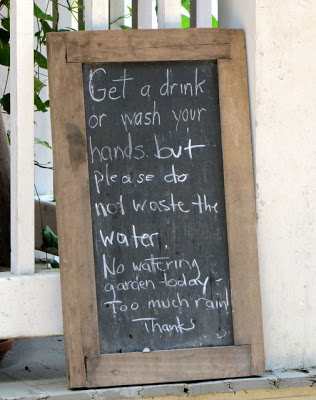 Get a drink
or wash your
hands but
please do
not waste the
water.
No watering
garden today -
Too much rain!
Thanks